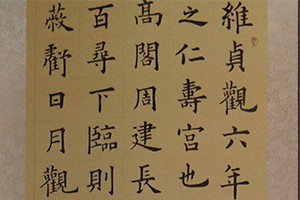 維貞觀六年
之仁壽宮也
髙閣周建長
百尋下臨則
蔽虧日月觀